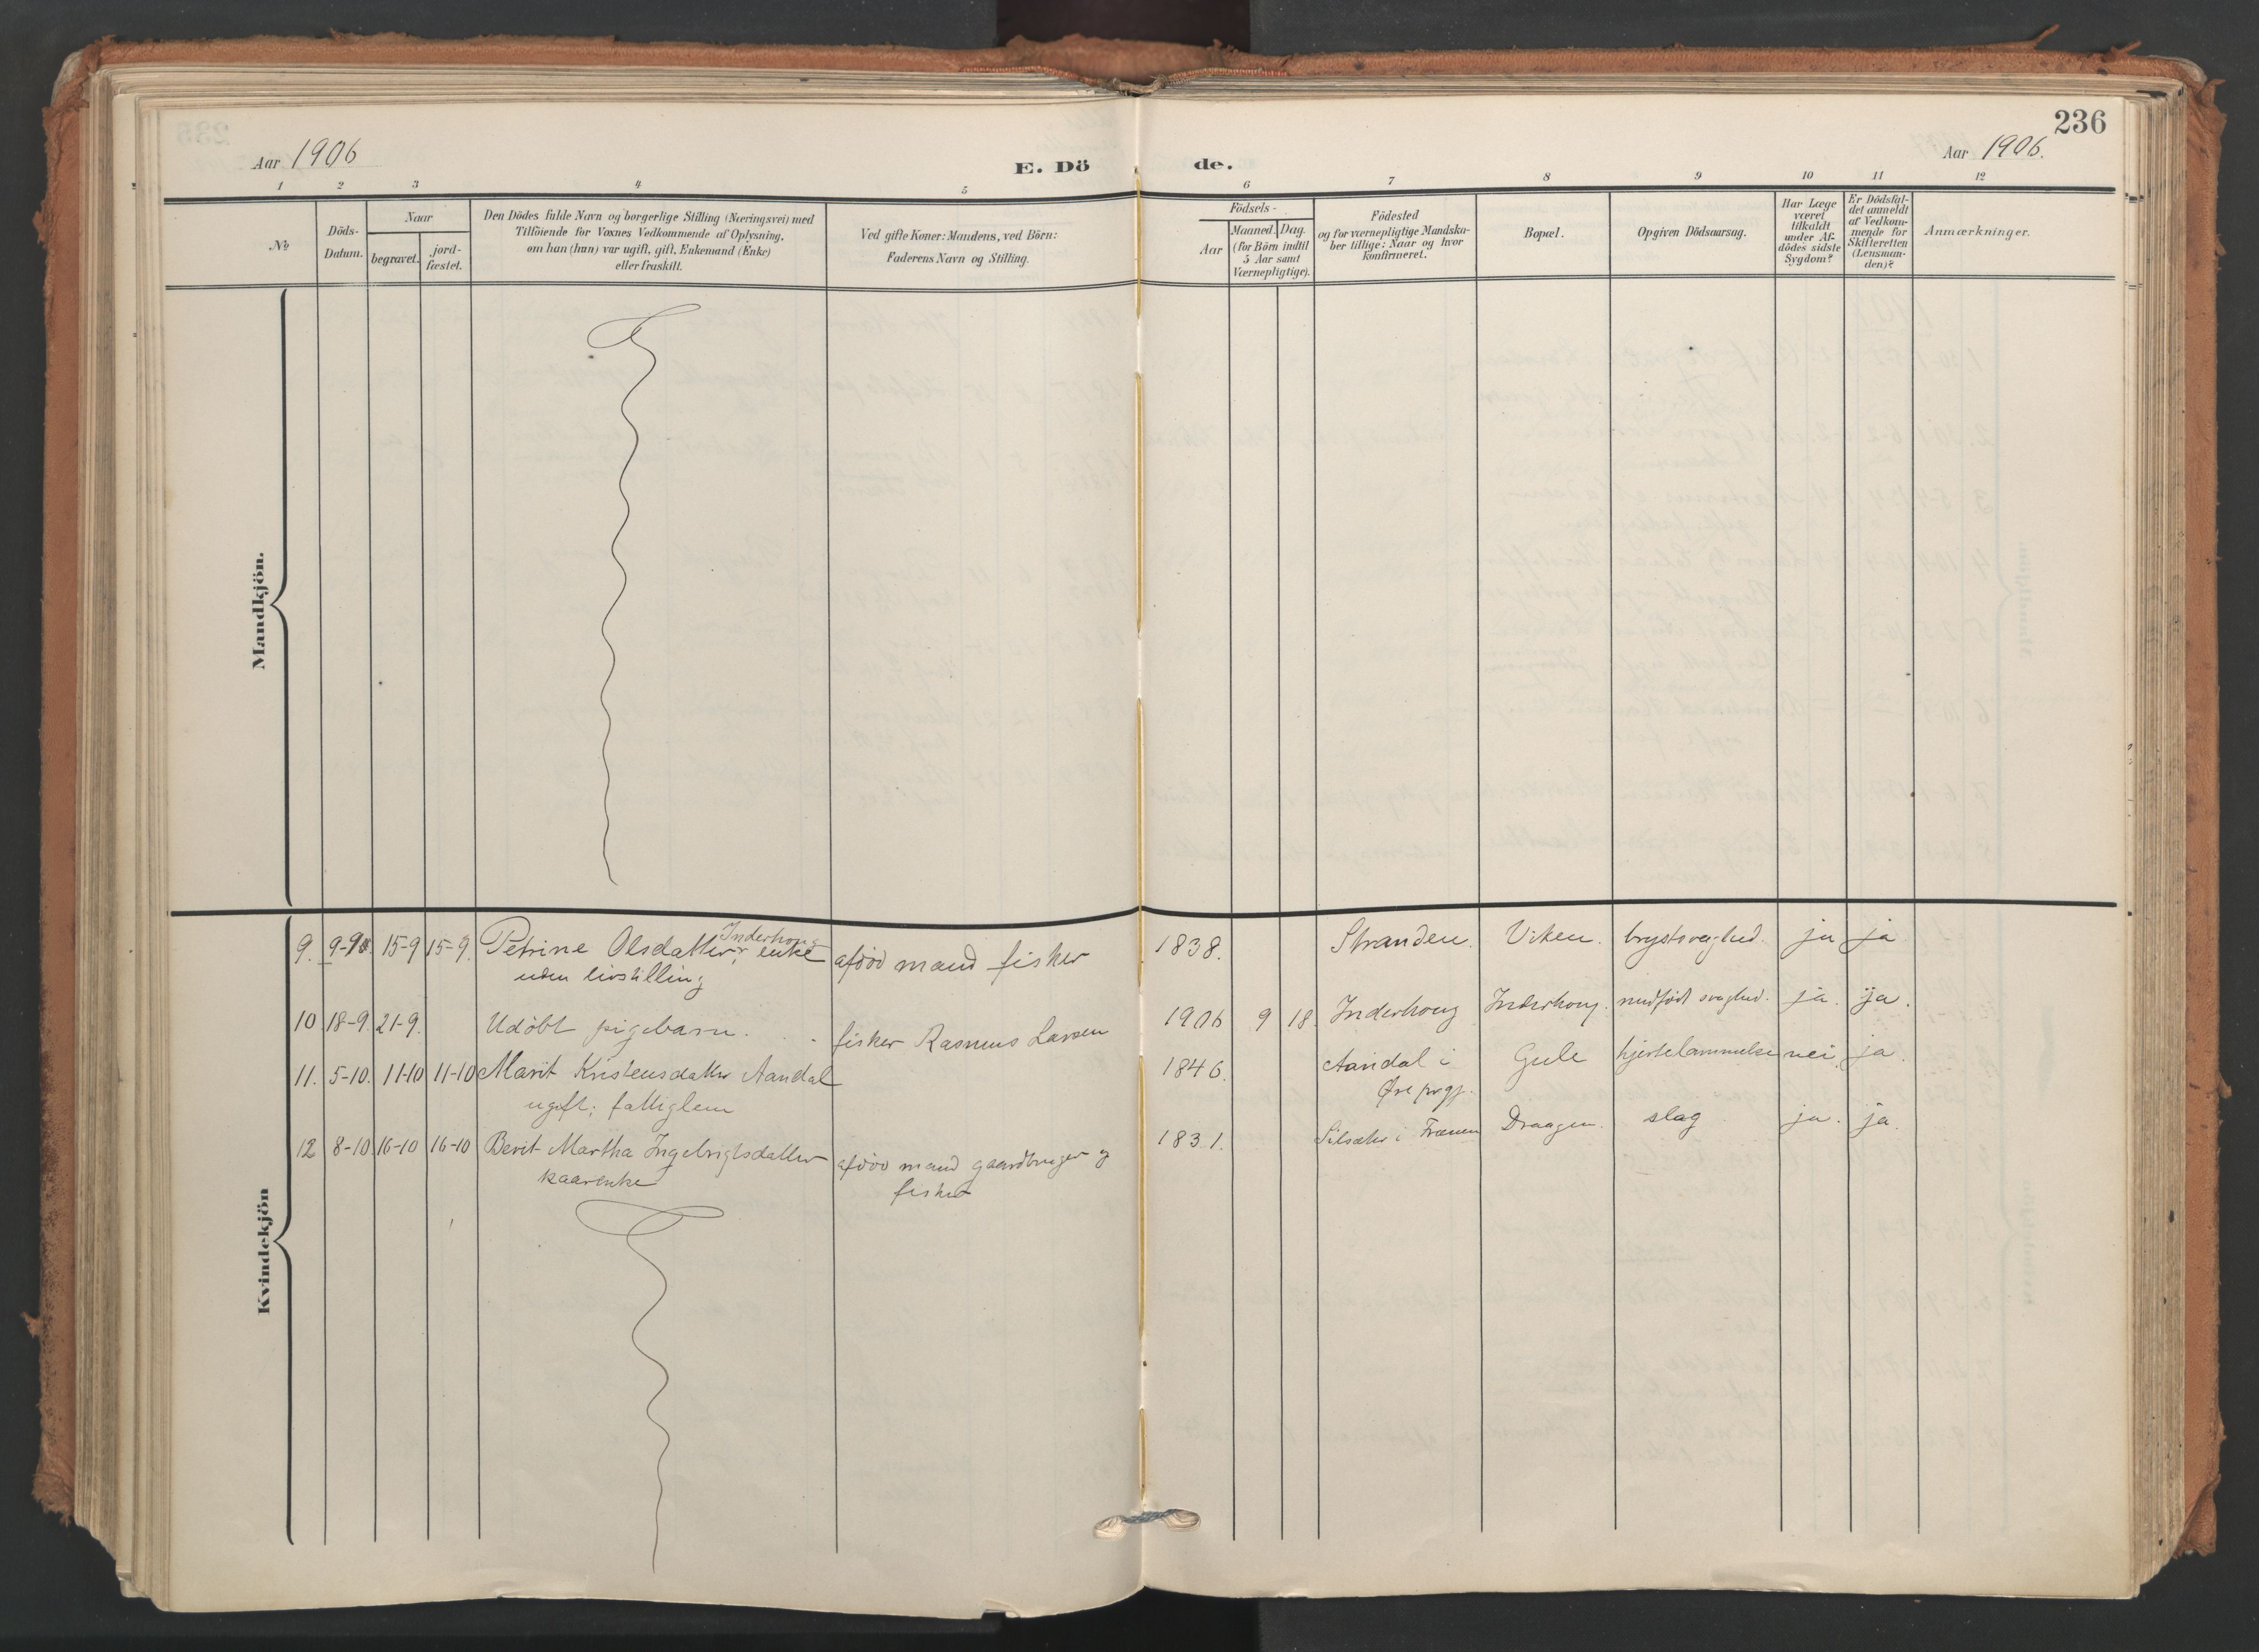 236
Aar 1906
E. Dö de.
Aar 1906.
1 2 3 4 5 6 7 8 9 10 11 12
No
Döds-
Datum.
Naar
begravet.
jord-
fæstet.
Den Dödes fulde Navn og borgerlige Stilling (Næringsvei) med
Tilföiende for Voxnes Vedkommende af Oplysning,
om han (hun) var ugift, gift, Enkemand (Enke)
eller fraskilt.
Ved gifte Koner: Mandens, ved Börn:
Faderens Navn og Stilling.
Födsels-
Aar
Maaned. Dag.
(for Börn indtil
5 Aar samt
Værnepligtige).
Födested
og for værnepligtige Mandska-
ber tillige: Naar og hvor
konfirmeret.
Bopæl.
Opgiven Dödsaarsag.
Har Læge
været
tilkaldt
under Af-
dödes sidste
Sygdom?
Er Dödsfal-
det anmeldt
af Vedkom-
mende for
Skifteretten
(Lensman-
den)?
Anmærkninger.
Mandkjön.
Kvindekjön
Inderhoug
9. 9-9. 15-9 15-9. Petrine Olsdatter, enke afdöd mand fisker 1838. Stranden. Viken. brystsvaghed. ja ja
uden livsstilling
10 18-9. 21-9. Udöbt pigebarn. fisker Rasmus Larsen 1906 9 18. Inderhoug Inderhoug. medfödt svaghed. ja. ja.
11. 5-10. 11-10 11-10 Marit Kristensdatter Aandal 1846. Aandal i Gule hjertelammelse nei ja.
ugift; fattiglem Øre prgj.
12 8-10 16-10 16-10 Berit Martha Ingebrigtsdatter afdöd mand gaardbruger og 1831. Silsæter i Frænen Draagen. slag ja. ja.
kaarenke fisker